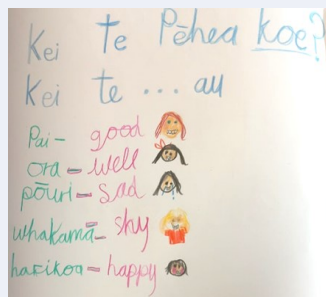 Kei te Pēhea koe?
Kei te ... au
Pai - good
ora - well
pōuri - sad
whakamā - shy
harikoa - happy